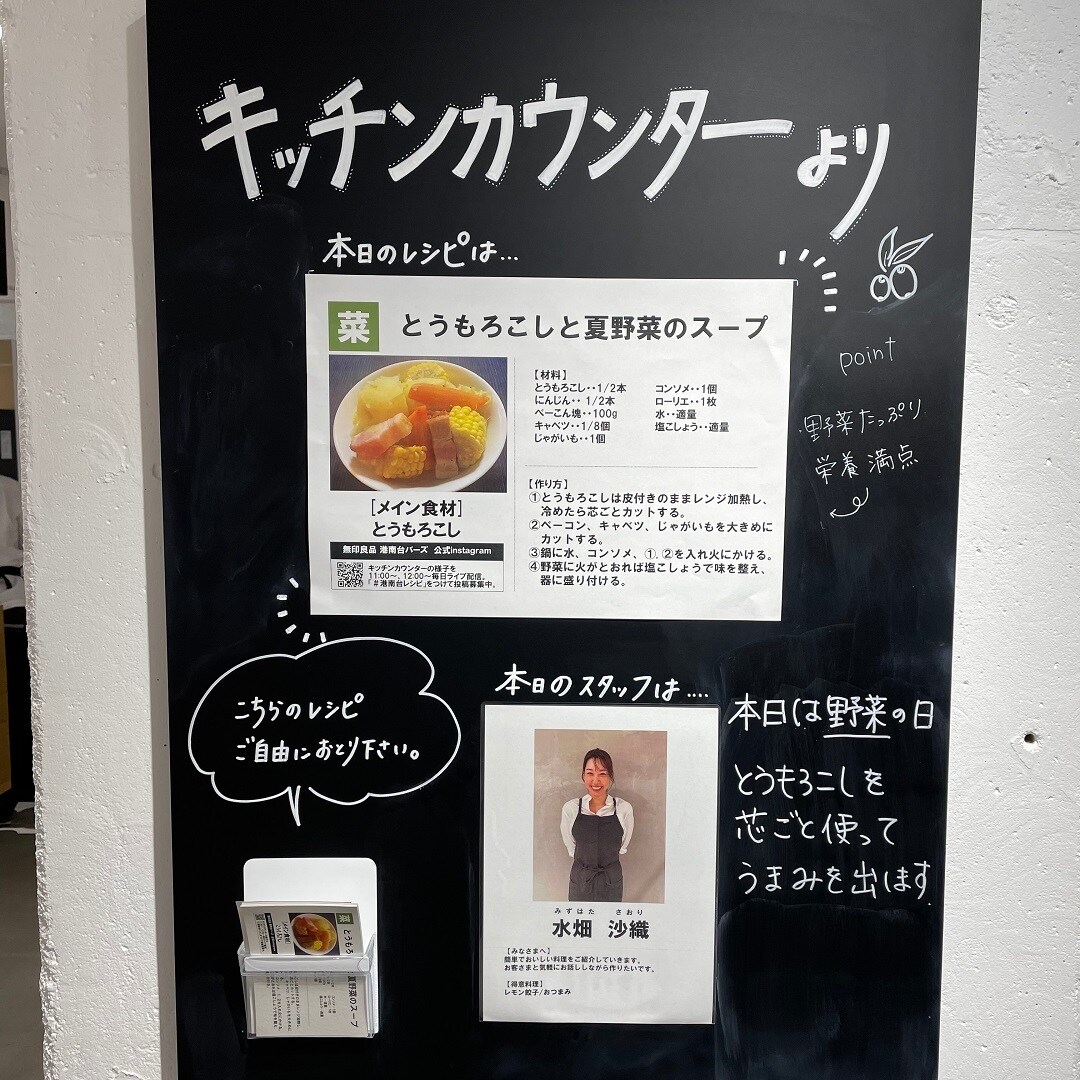 キッチンカウンターより
本日のレシピは…
菜 とうもろこしと夏野菜のスープ
[メイン食材]
とうもろこし
無印良品 港南台バーズ 公式instagram
キッチンカウンターの様子を
11:00〜、12:00〜毎日ライブ配信。
「＃港南台レシピ」をつけて投稿募集中。
【材料】
とうもろこし・・1/2本
にんじん・・1/2本
べーこん塊・・100g
キャベツ・・1/8個
じゃがいも・・1個
コンソメ・・1個
ローリエ・・1枚
水・・適量
塩こしょう・・適量
【作り方】
①とうもろこしは皮付きのままレンジ加熱し、
冷めたら芯ごとカットする。
②ベーコン、キャベツ、じゃがいもを大きめに
カットする。
③鍋に水、コンソメ、①.②を入れ火にかける。
④野菜に火がとおれば塩こしょうで味を整え、
器に盛り付ける。
point
野菜たっぷり
栄養満点
こちらのレシピ
ご自由におとり下さい。
本日のスタッフは....
みずはた さおり
水畑 沙織
【みなさまへ】
簡単でおいしい料理をご紹介していきます。
お客さまと気軽にお話ししながら作りたいです。
【得意料理】
レモン餃子/おつまみ
本日は野菜の日
とうもろこしを
芯ごと使って
うまみを出ます
菜 とうもろ
[メイン食材]
夏野菜のスープ